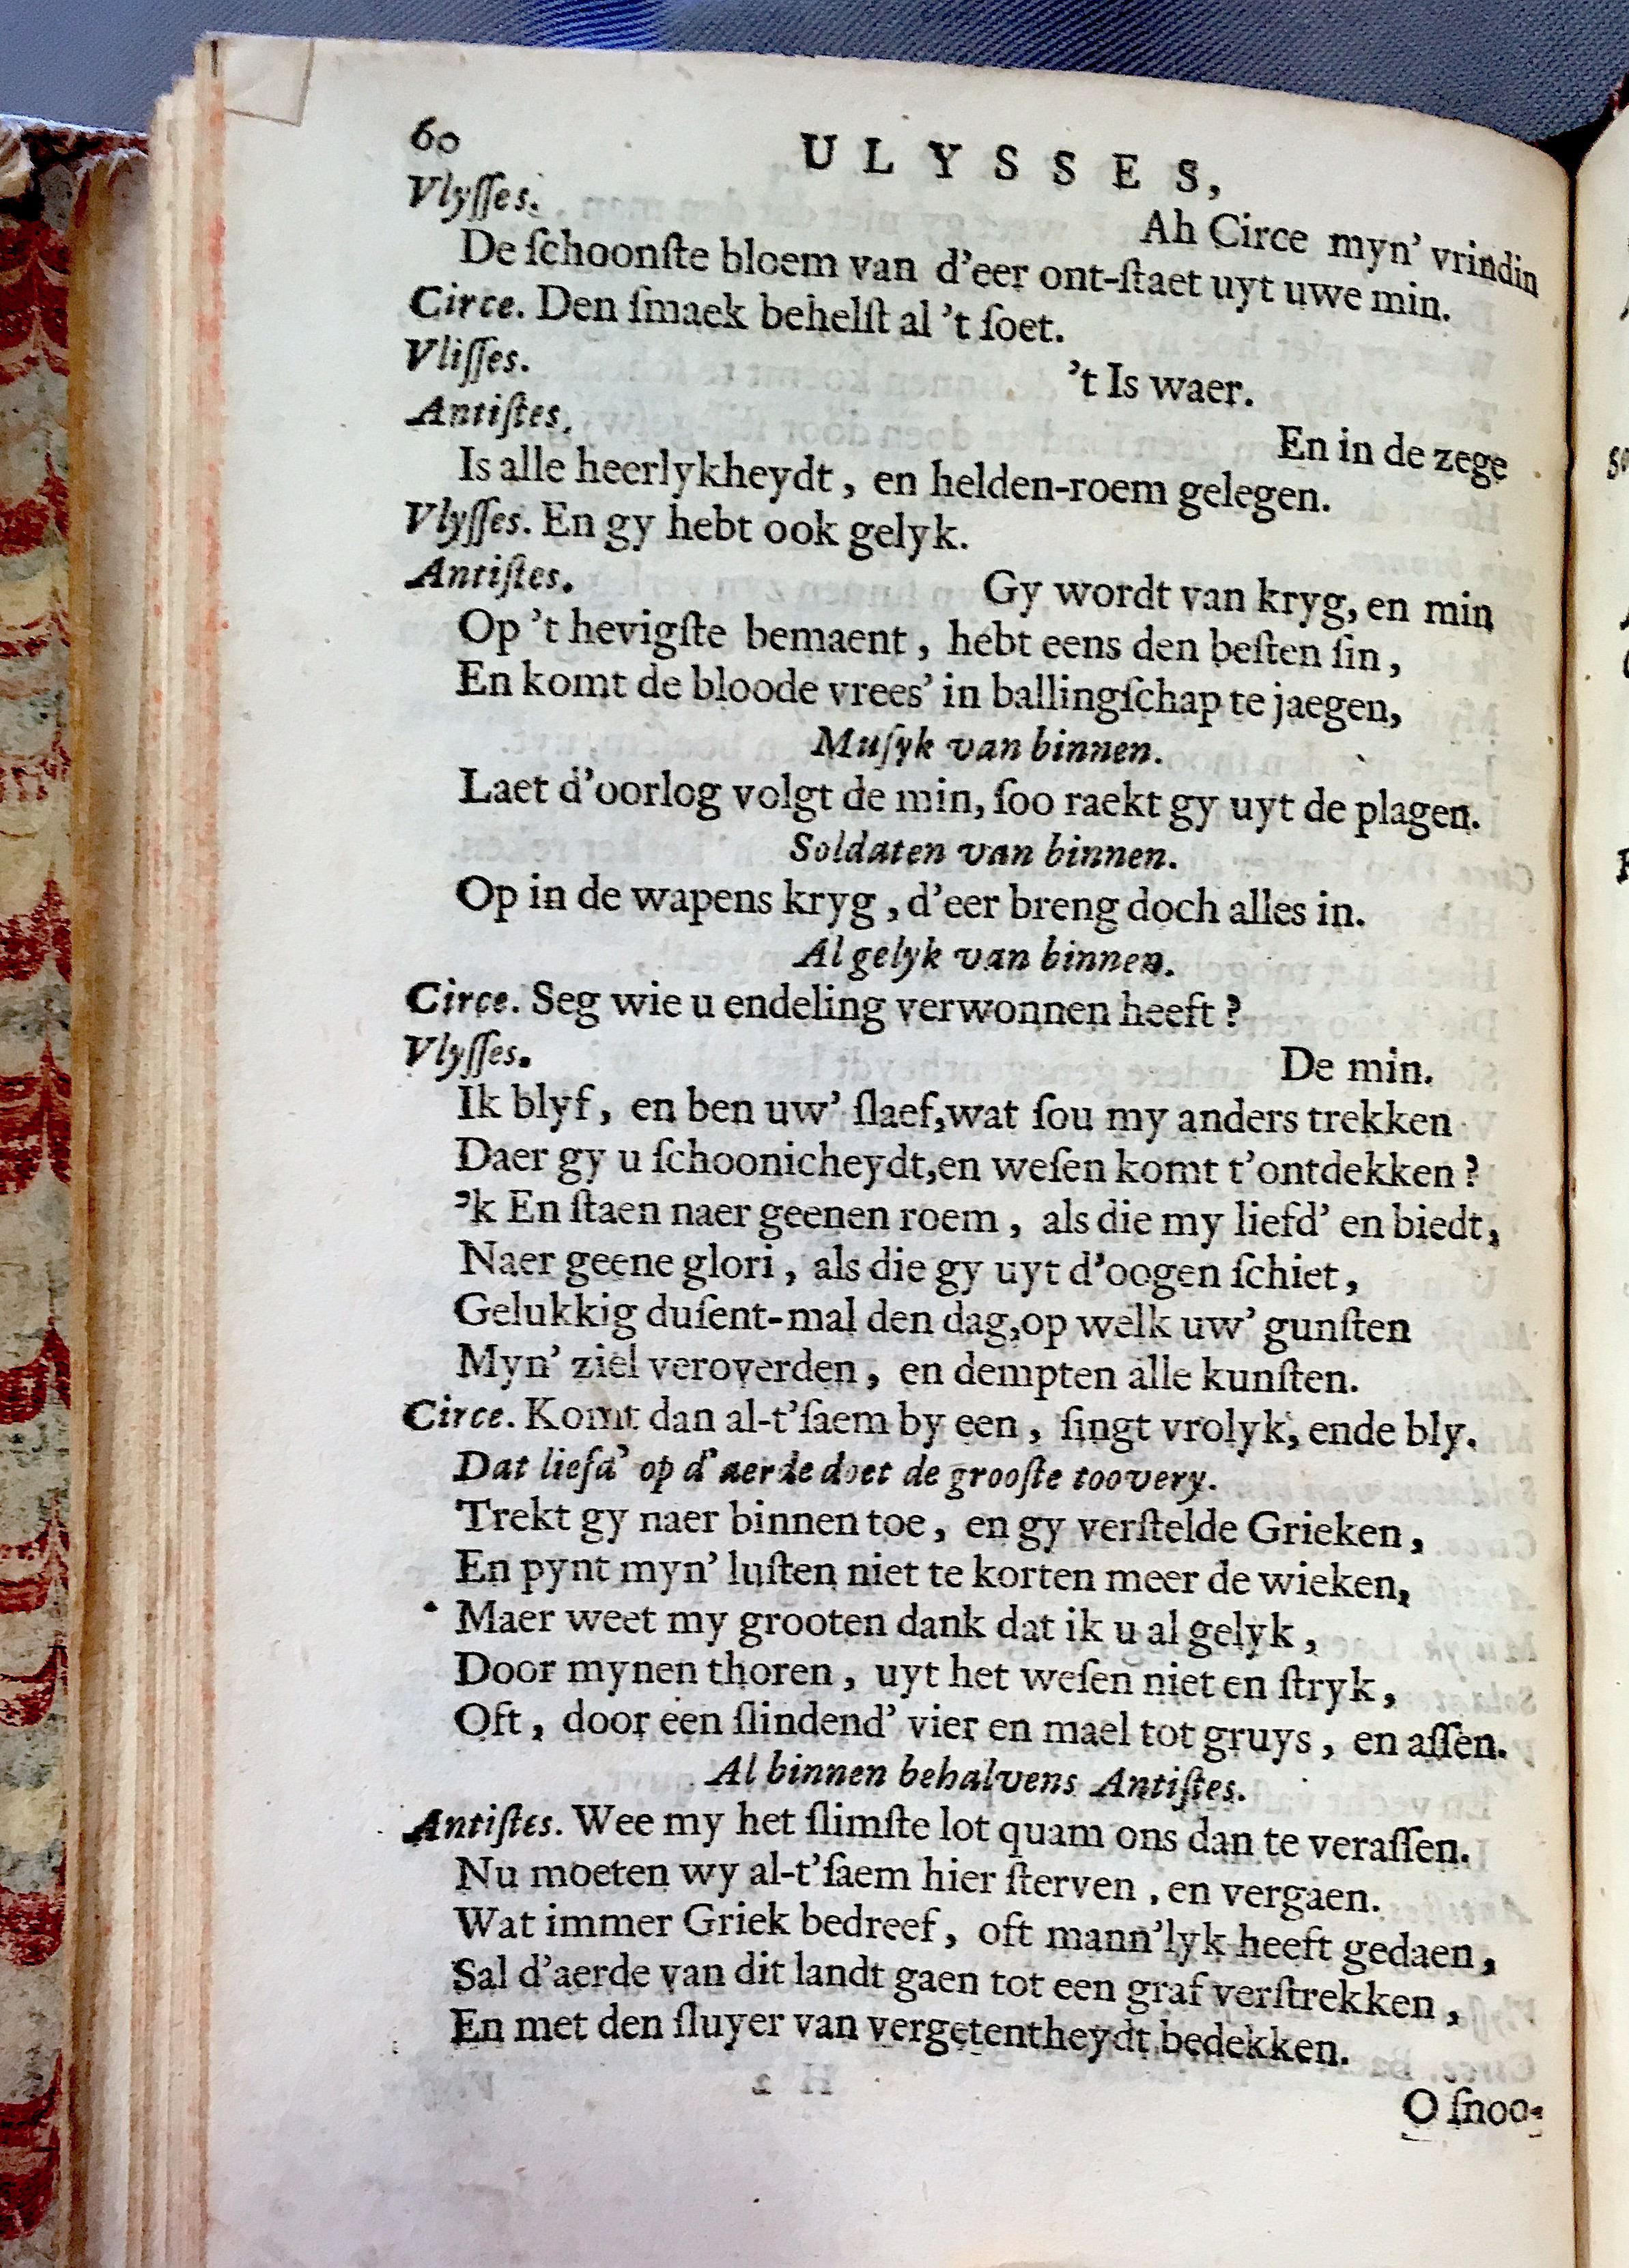 60
ULYSSES,
Vlyſſes.
Ah Circe myn' vrindin
De ſchoonſte bloem van d'eer ont-ſtaet uyt uwe min.
Circe. Den ſmaek behelſt al 't ſoet.
Vliſſes.
't Is waer.
Antiſtes,
En in de zege
Is alle heerlykheydt, en helden-roem gelegen.
Vlyſſes. En gy hebt ook gelyk.
Antiſtes.
Gy wordt van kryg, en min
Op 't hevigſte bemaent, hebt eens den beſten ſin,
En komt de bloode vrees' in ballingſchap te jaegen,
Muſyk van binnen.
Laet d'oorlog volgt de min, ſoo raekt gy uyt de plagen.
Soldaten van binnen.
Op in de wapens kryg, d'eer breng doch alles in.
Al gelyk van binnen.
Circe. Seg wie u endeling verwonnen heeft?
Vlyſſes.
De min.
Ik blyf, en ben uw' ſlaef, wat ſou my anders trekken
Daer gy u ſchoonicheydt, en weſen komt t'ontdekken?
'k En ſtaen naer geenen roem, als die my liefd' en biedt,
Naer geene glori, als die gy uyt d'oogen ſchiet,
Gelukkig duſent-mal den dag, op welk uw' gunſten
Myn' ziel veroverden, en dempten alle kunſten.
Circe. Komt dan al-t'ſaem by een, ſingt vrolyk, ende bly.
Dat liefd' op d'aerde doet de grooſte toovery.
Trekt gy naer binnen toe, en gy verſtelde Grieken,
En pynt myn' luſten niet te korten meer de wieken,
Maer weet my grooten dank dat ik u al gelyk,
Door mynen thoren, uyt het weſen niet en ſtryk,
Oft, door een ſlindend' vier en mael tot gruys, en aſſen.
Al binnen behalvens Antiſtes.
Antiſtes. Wee my het ſlimſte lot quam ons dan te veraſſen.
Nu moeten wy al-t'ſaem hier ſterven, en vergaen.
Wat immer Griek bedreef, oft mann'lyk heeft gedaen,
Sal d'aerde van dit landt gaen tot een graf verſtrekken,
En met den ſluyer van vergetentheydt bedekken.
O ſnoo-